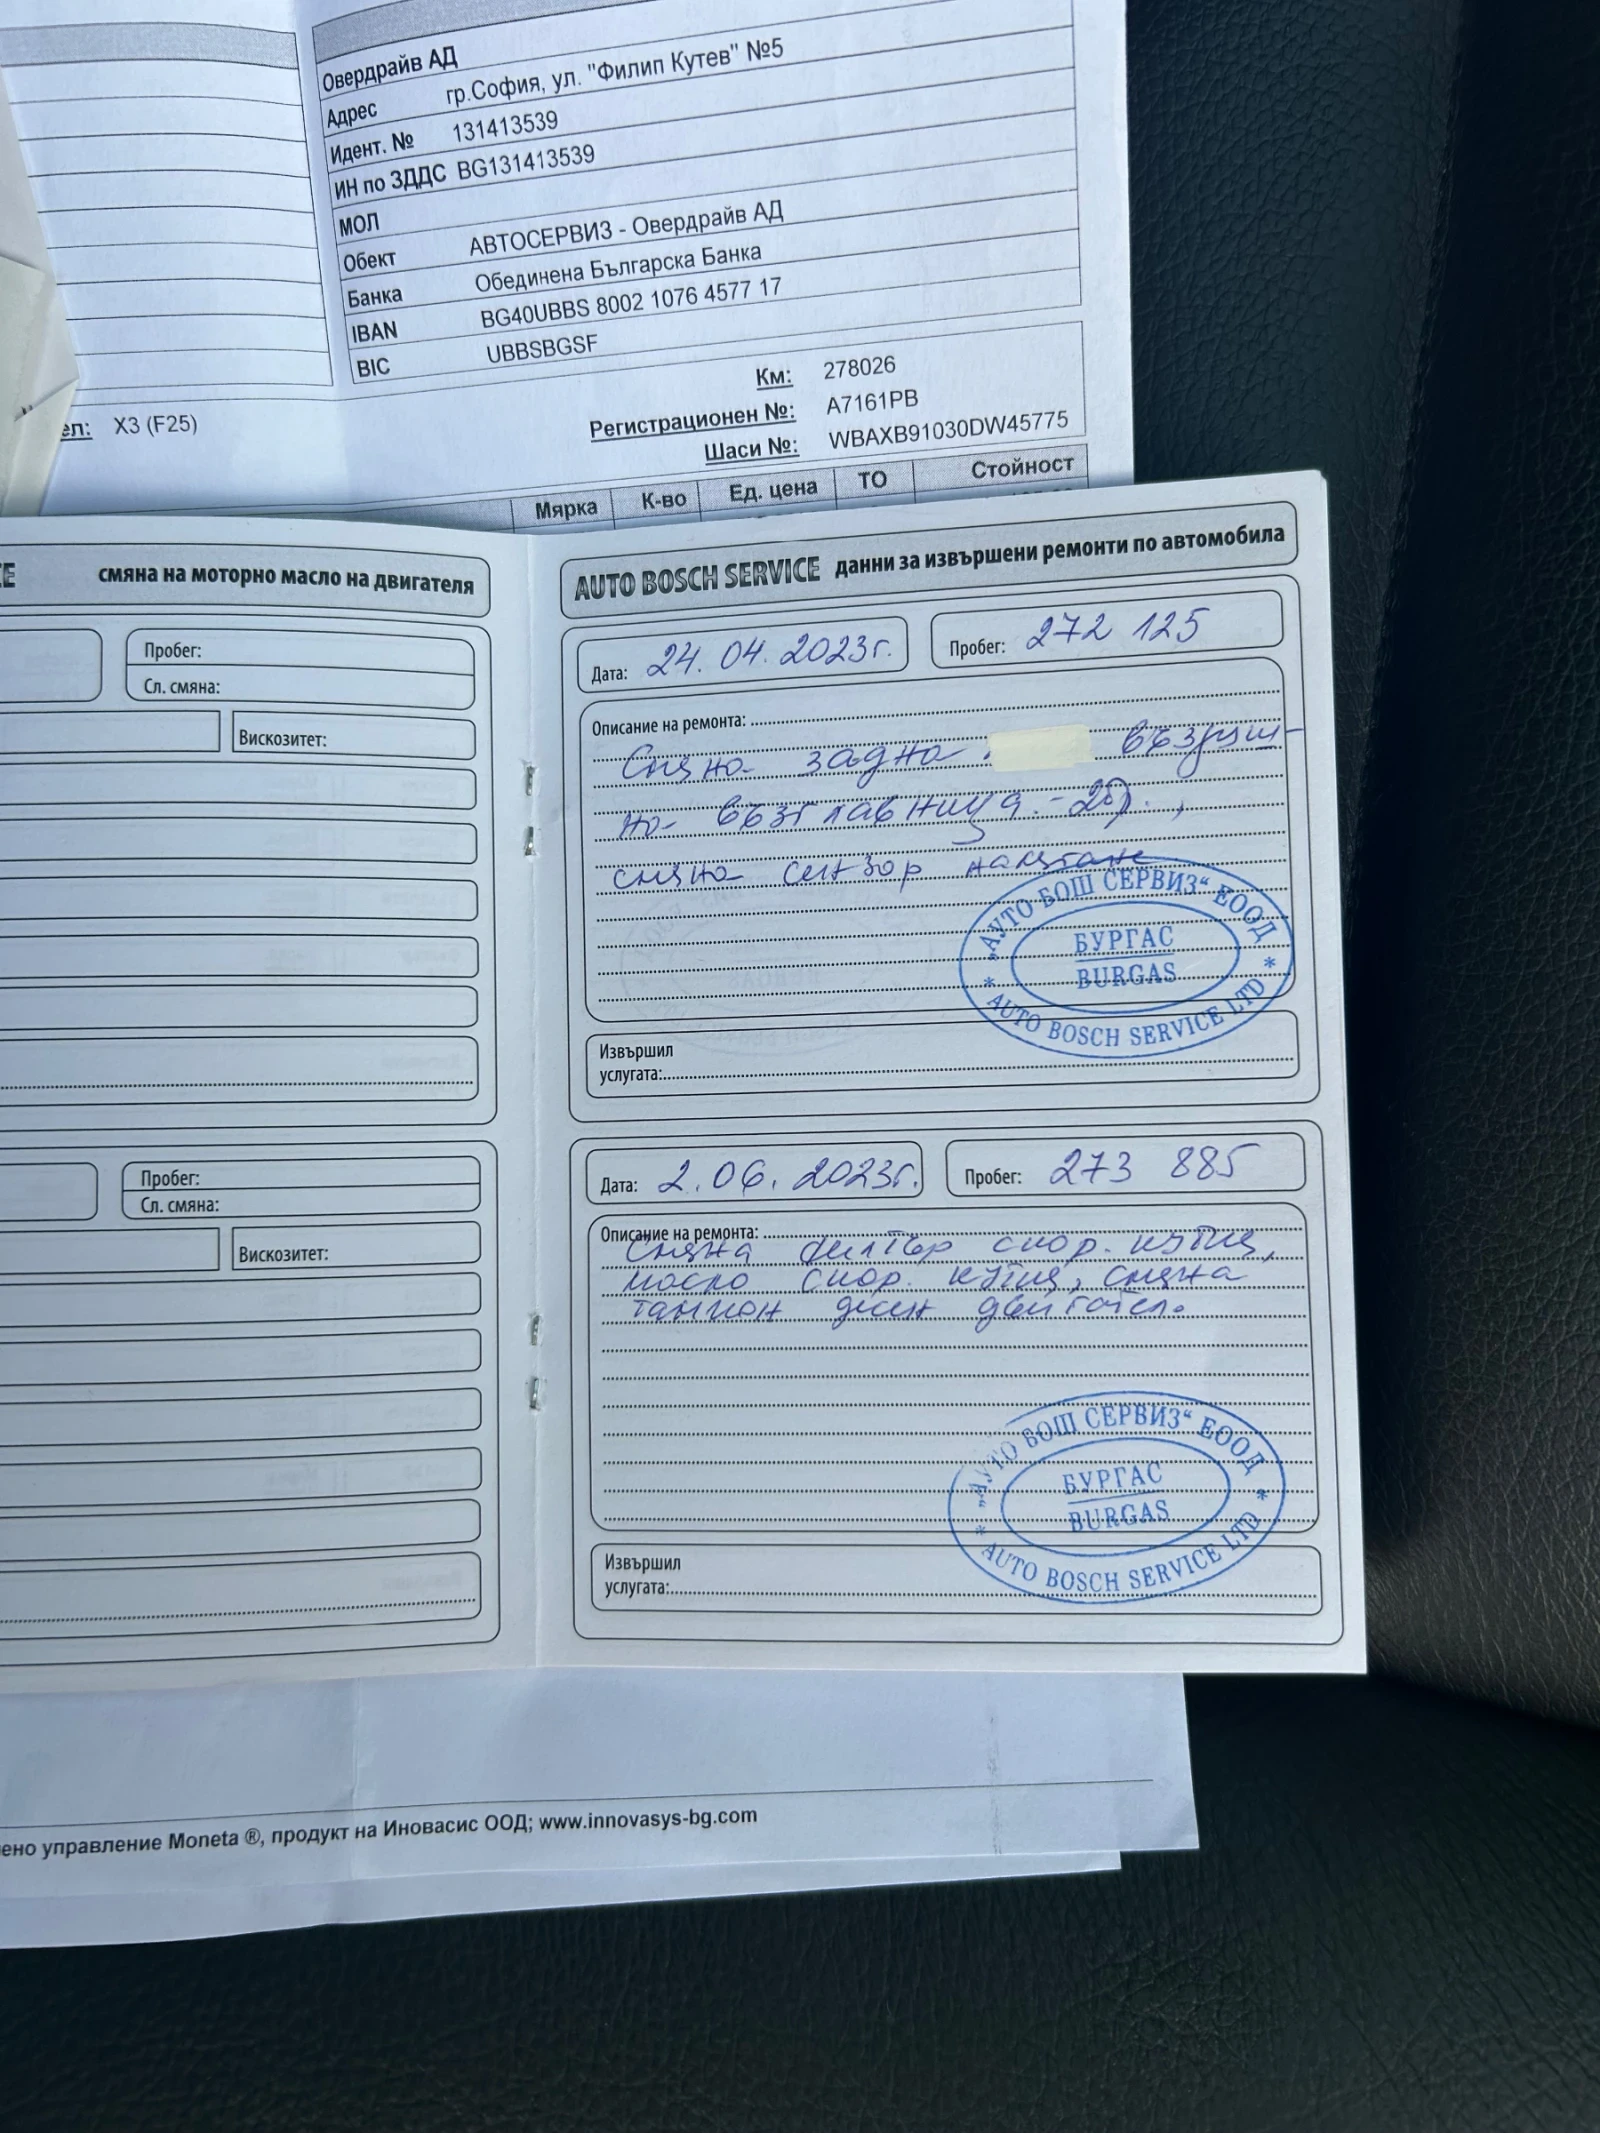 Овердрайв АД
Адрес гр.София, ул. "Филип Кутев" №5
Идент. № 131413539
ИН по ЗДДС BG131413539
МОЛ
Обект АВТОСЕРВИЗ - Овердрайв АД
Банка Обединена Българска Банка
IBAN BG40UBBS 8002 1076 4577 17
BIC UBBSBGSF
Км: 278026
ел: X3 (F25) Регистрационен №: A7161PB
Шаси №: WBAXB91030DW45775
Мярка К-во Ед. цена ТО Стойност
CE смяна на моторно масло на двигателя
Пробег:
Сл. смяна:
Вискозитет:
Пробег:
Сл. смяна:
Вискозитет:
AUTO BOSCH SERVICE данни за извършени ремонти по автомобила
Дата: 24.04.2023г. Пробег: 272 125
Описание на ремонта:
Смяна задна въздуш-
на възглавница - 2бр.,
смяна сензор налягане
„АУТО БОШ СЕРВИЗ“ ЕООД
БУРГАС
BURGAS
* AUTO BOSCH SERVICE LTD *
Извършил
услугата:
Дата: 2.06.2023г. Пробег: 273 885
Описание на ремонта:
Смяна филтър скор. кутия,
масло скор. кутия, смяна
тампон десен двигател.
„АУТО БОШ СЕРВИЗ“ ЕООД
БУРГАС
BURGAS
* AUTO BOSCH SERVICE LTD *
Извършил
услугата:
ено управление Moneta ®, продукт на Иновасис ООД; www.innovasys-bg.com